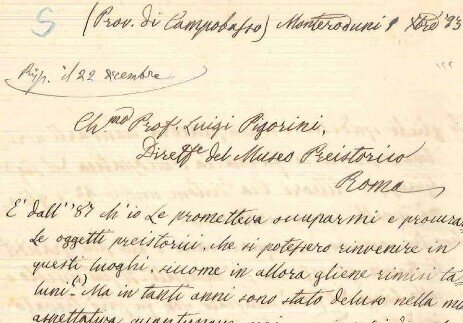 S
(Prov. di Campobasso) Monteroduni 9 Xbre 93
Risp. il 22 dicembre
Ch.mo Prof. Luigi Pigorini,
Dirett.e del Museo Preistorico
Roma
È dall''87 ch'io Le prometteva occuparmi e procurar
Le oggetti preistorici, che si potessero rinvenire in
questi luoghi, siccome in allora gliene rimisi ta-
luni. Ma in tanti anni sono stato deluso nella mia
aspettativa, quantunque